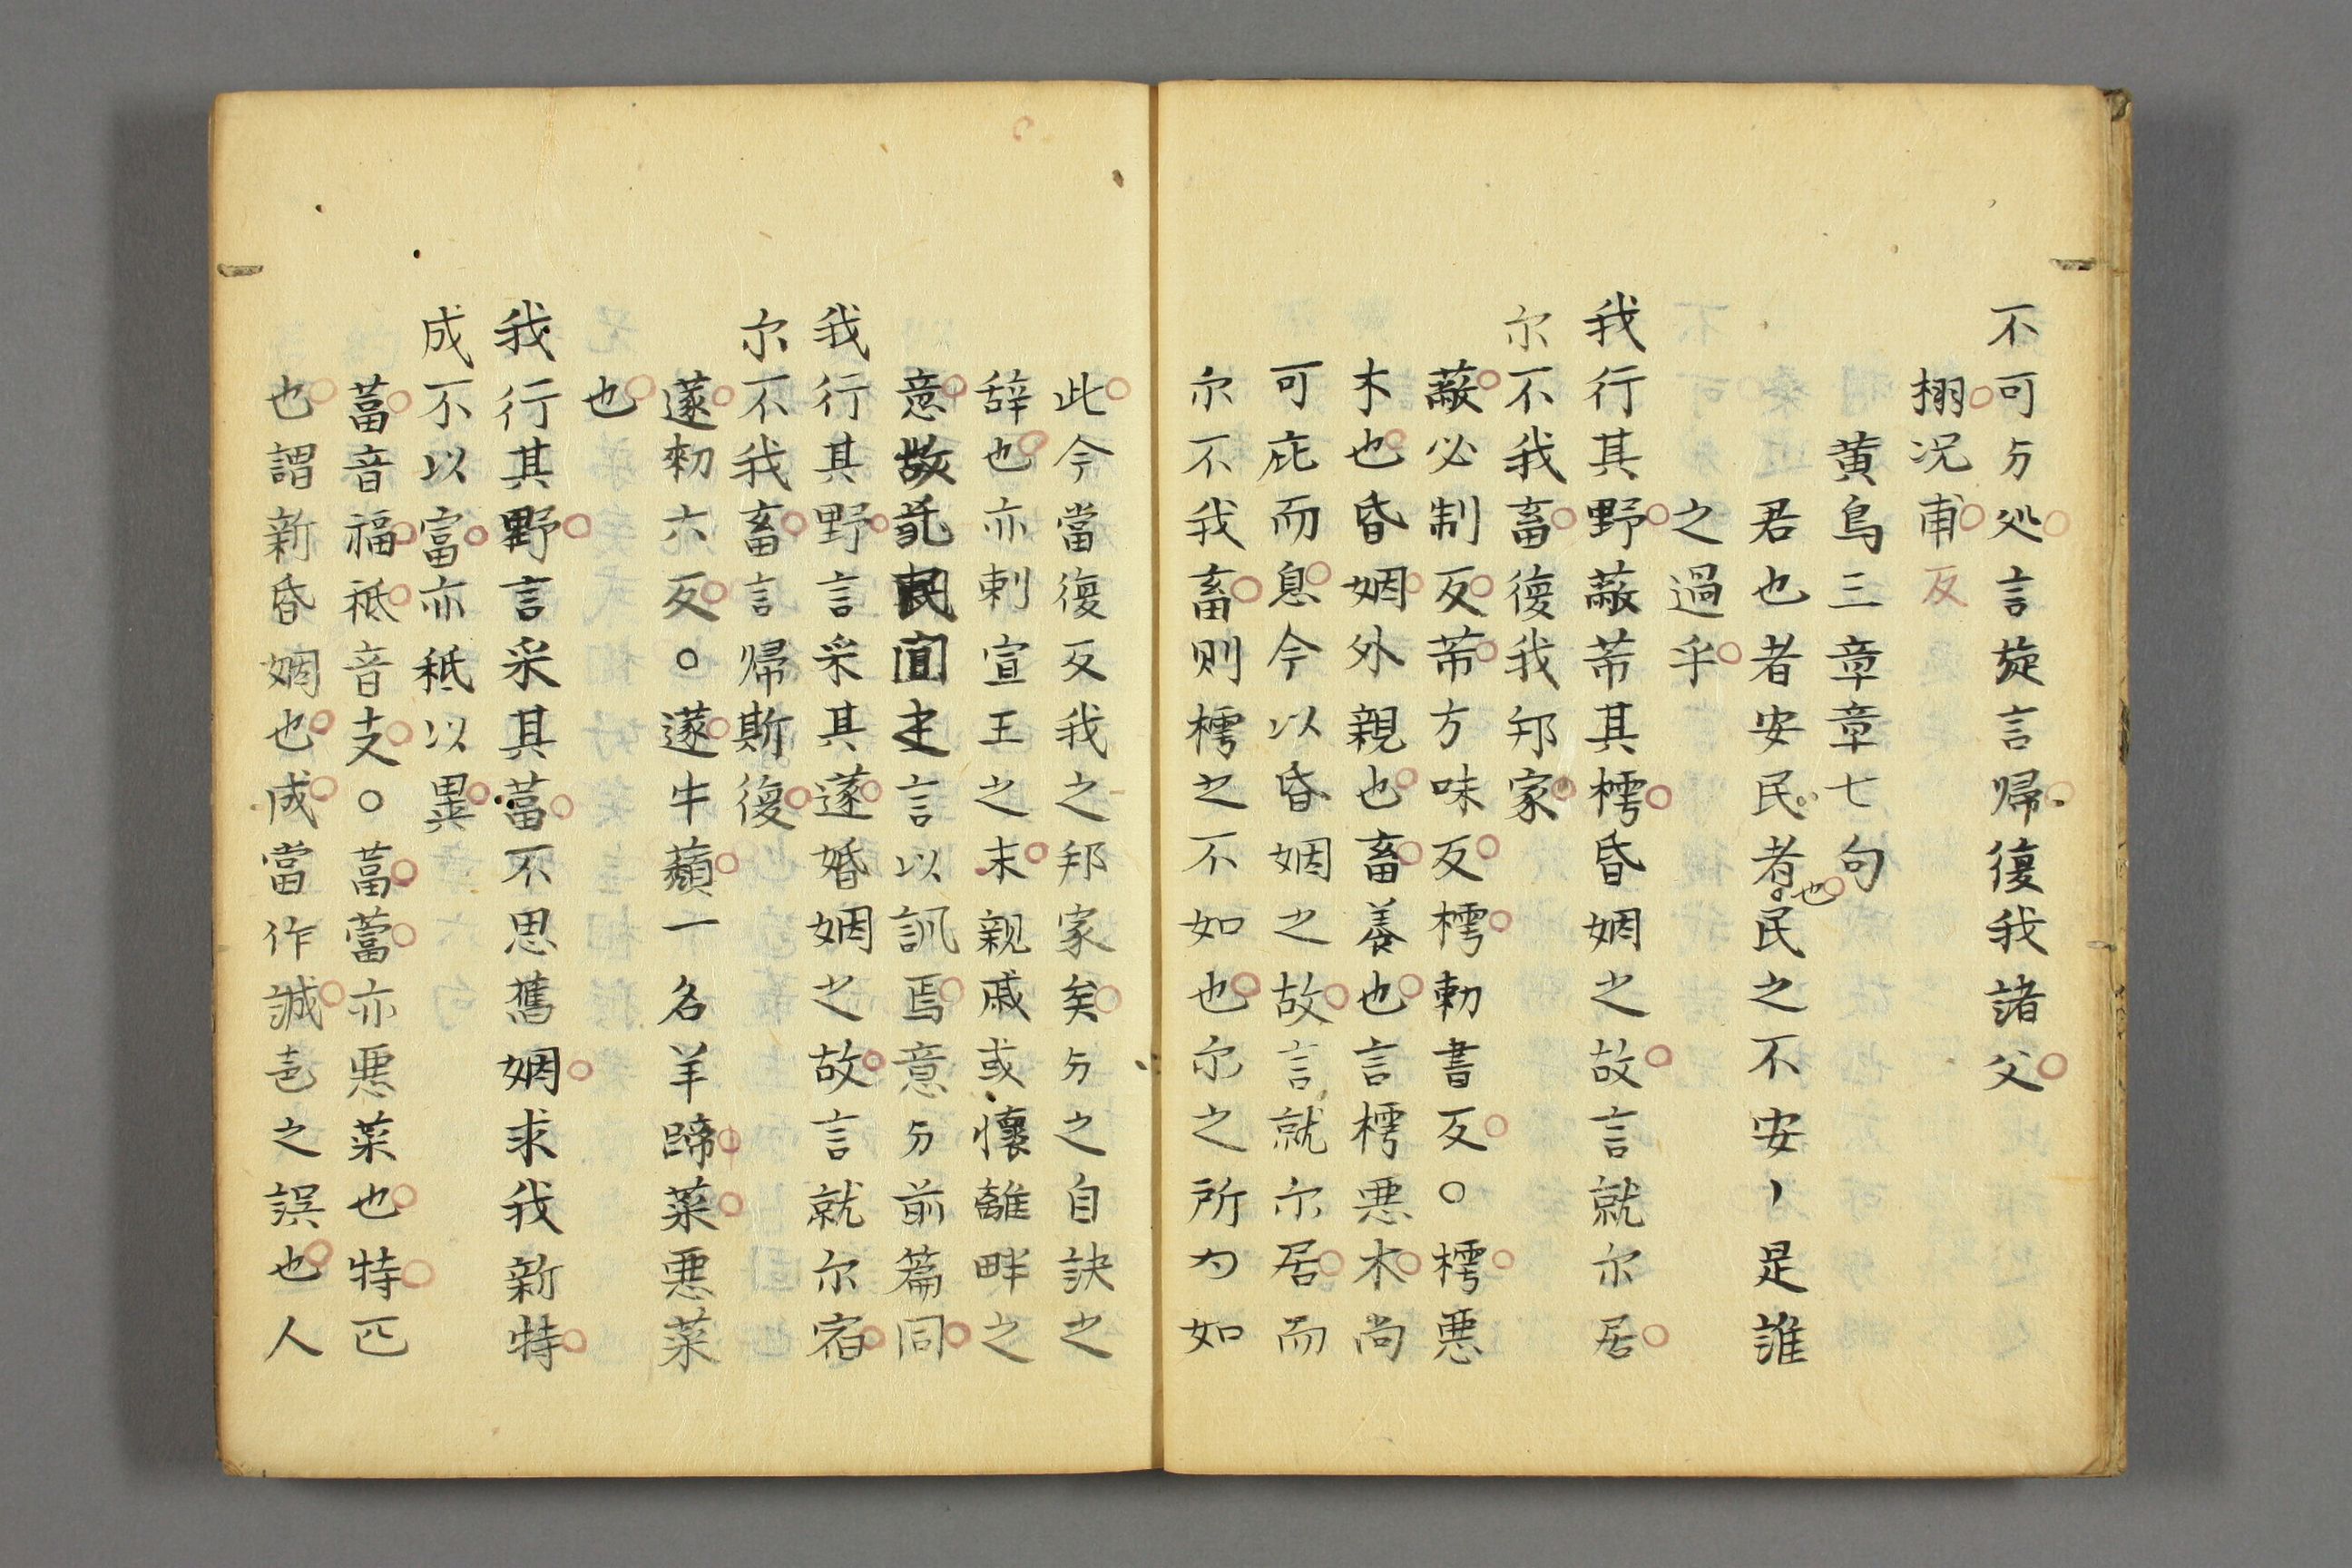 不可与処言旋言帰復我諸父
栩况甫反
黄鳥三章章七句
君也者安民者也民之不安丶是誰
之過乎
我行其野蔽芾其樗昏姻之故言就尔居
尔不我畜復我邦家
蔽必制反芾方味反樗勑書反○樗悪
木也昏姻外親也畜養也言樗悪木尚
可庇而息今以昏姻之故言就尔居而
尔不我畜則樗之不如也尔之所为如
此今當復反我之邦家矣与之自訣之
辞也亦刺宣王之末親戚或懐離畔之
意故託民間之言以諷焉意与前篇同
我行其野言采其蓫婚姻之故言就尔宿
尔不我畜言帰斯復
蓫勑六反○蓫牛蘈一名羊蹄菜悪菜
也
我行其野言采其葍不思舊姻求我新特
成不以富亦秖以異
葍音福秖音支○葍藑亦悪菜也特匹
也謂新昏姻也成當作誠音之誤也人